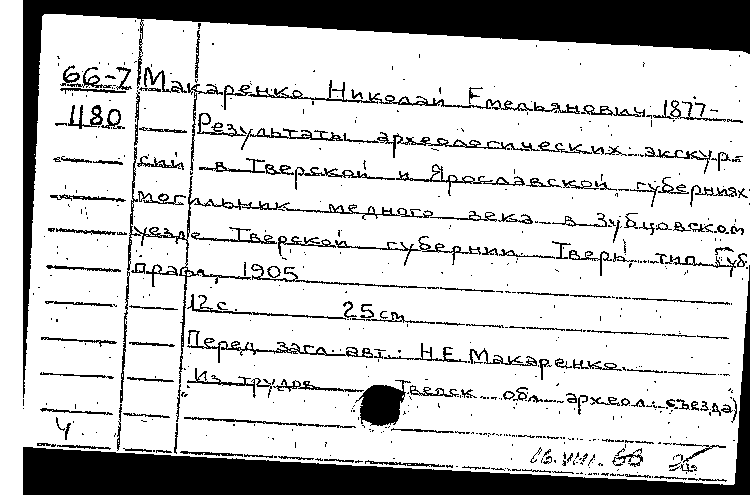 66-7 Макаренко, Николай Емельянович, 1877-
1180 Результаты археологических экскур-
сий в Тверской и Ярославской губерниях,
могильник медного века в Зубцовском
уезде Тверской губернии. Тверь, тип. Губ.
правл., 1905
12 с. 25 см.
Перед загл. авт.: Н.Е. Макаренко.
Из трудов Тверск. обл. археол. съезда)
Ч
16.VIII.66